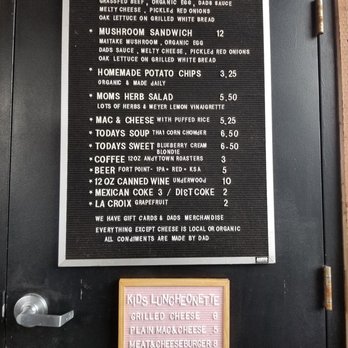 GRASSFED BEEF, ORGANIC EGG, DADS SAUCE
MELTY CHEESE, PICKLED RED ONIONS
OAK LETTUCE ON GRILLED WHITE BREAD
* MUSHROOM SANDWICH 12
MAITAKE MUSHROOM, ORGANIC EGG
DADS SAUCE, MELTY CHEESE, PICKLED RED ONIONS
OAK LETTUCE ON GRILLED WHITE BREAD
* HOMEMADE POTATO CHIPS 3,25
ORGANIC & MADE DAILY
* MOMS HERB SALAD 5,50
LOTS OF HERBS & MEYER LEMON VINAIGRETTE
* MAC & CHEESE WITH PUFFED RICE 5,25
* TODAYS SOUP THAI CORN CHOWDER 6,50
* TODAYS SWEET BLUEBERRY CREAM BLONDIE 6-50
* COFFEE 12OZ ANDYTOWN ROASTERS 3
* BEER FORT POINT- IPA+ RED+ KSA 5
* 12 OZ CANNED WINE UNDERWOOD 10
* MEXICAN COKE 3 / DIET COKE 2
* LA CROIX GRAPEFRUIT 2
WE HAVE GIFT CARDS & DADS MERCHANDISE
EVERYTHING EXCEPT CHEESE IS LOCAL OR ORGANIC
ALL CONDIMENTS ARE MADE BY DAD
KIDS LUNCHEONETTE
GRILLED CHEESE 6
PLAIN MAC&CHEESE 5
MEAT&CHEESEBURGER 8